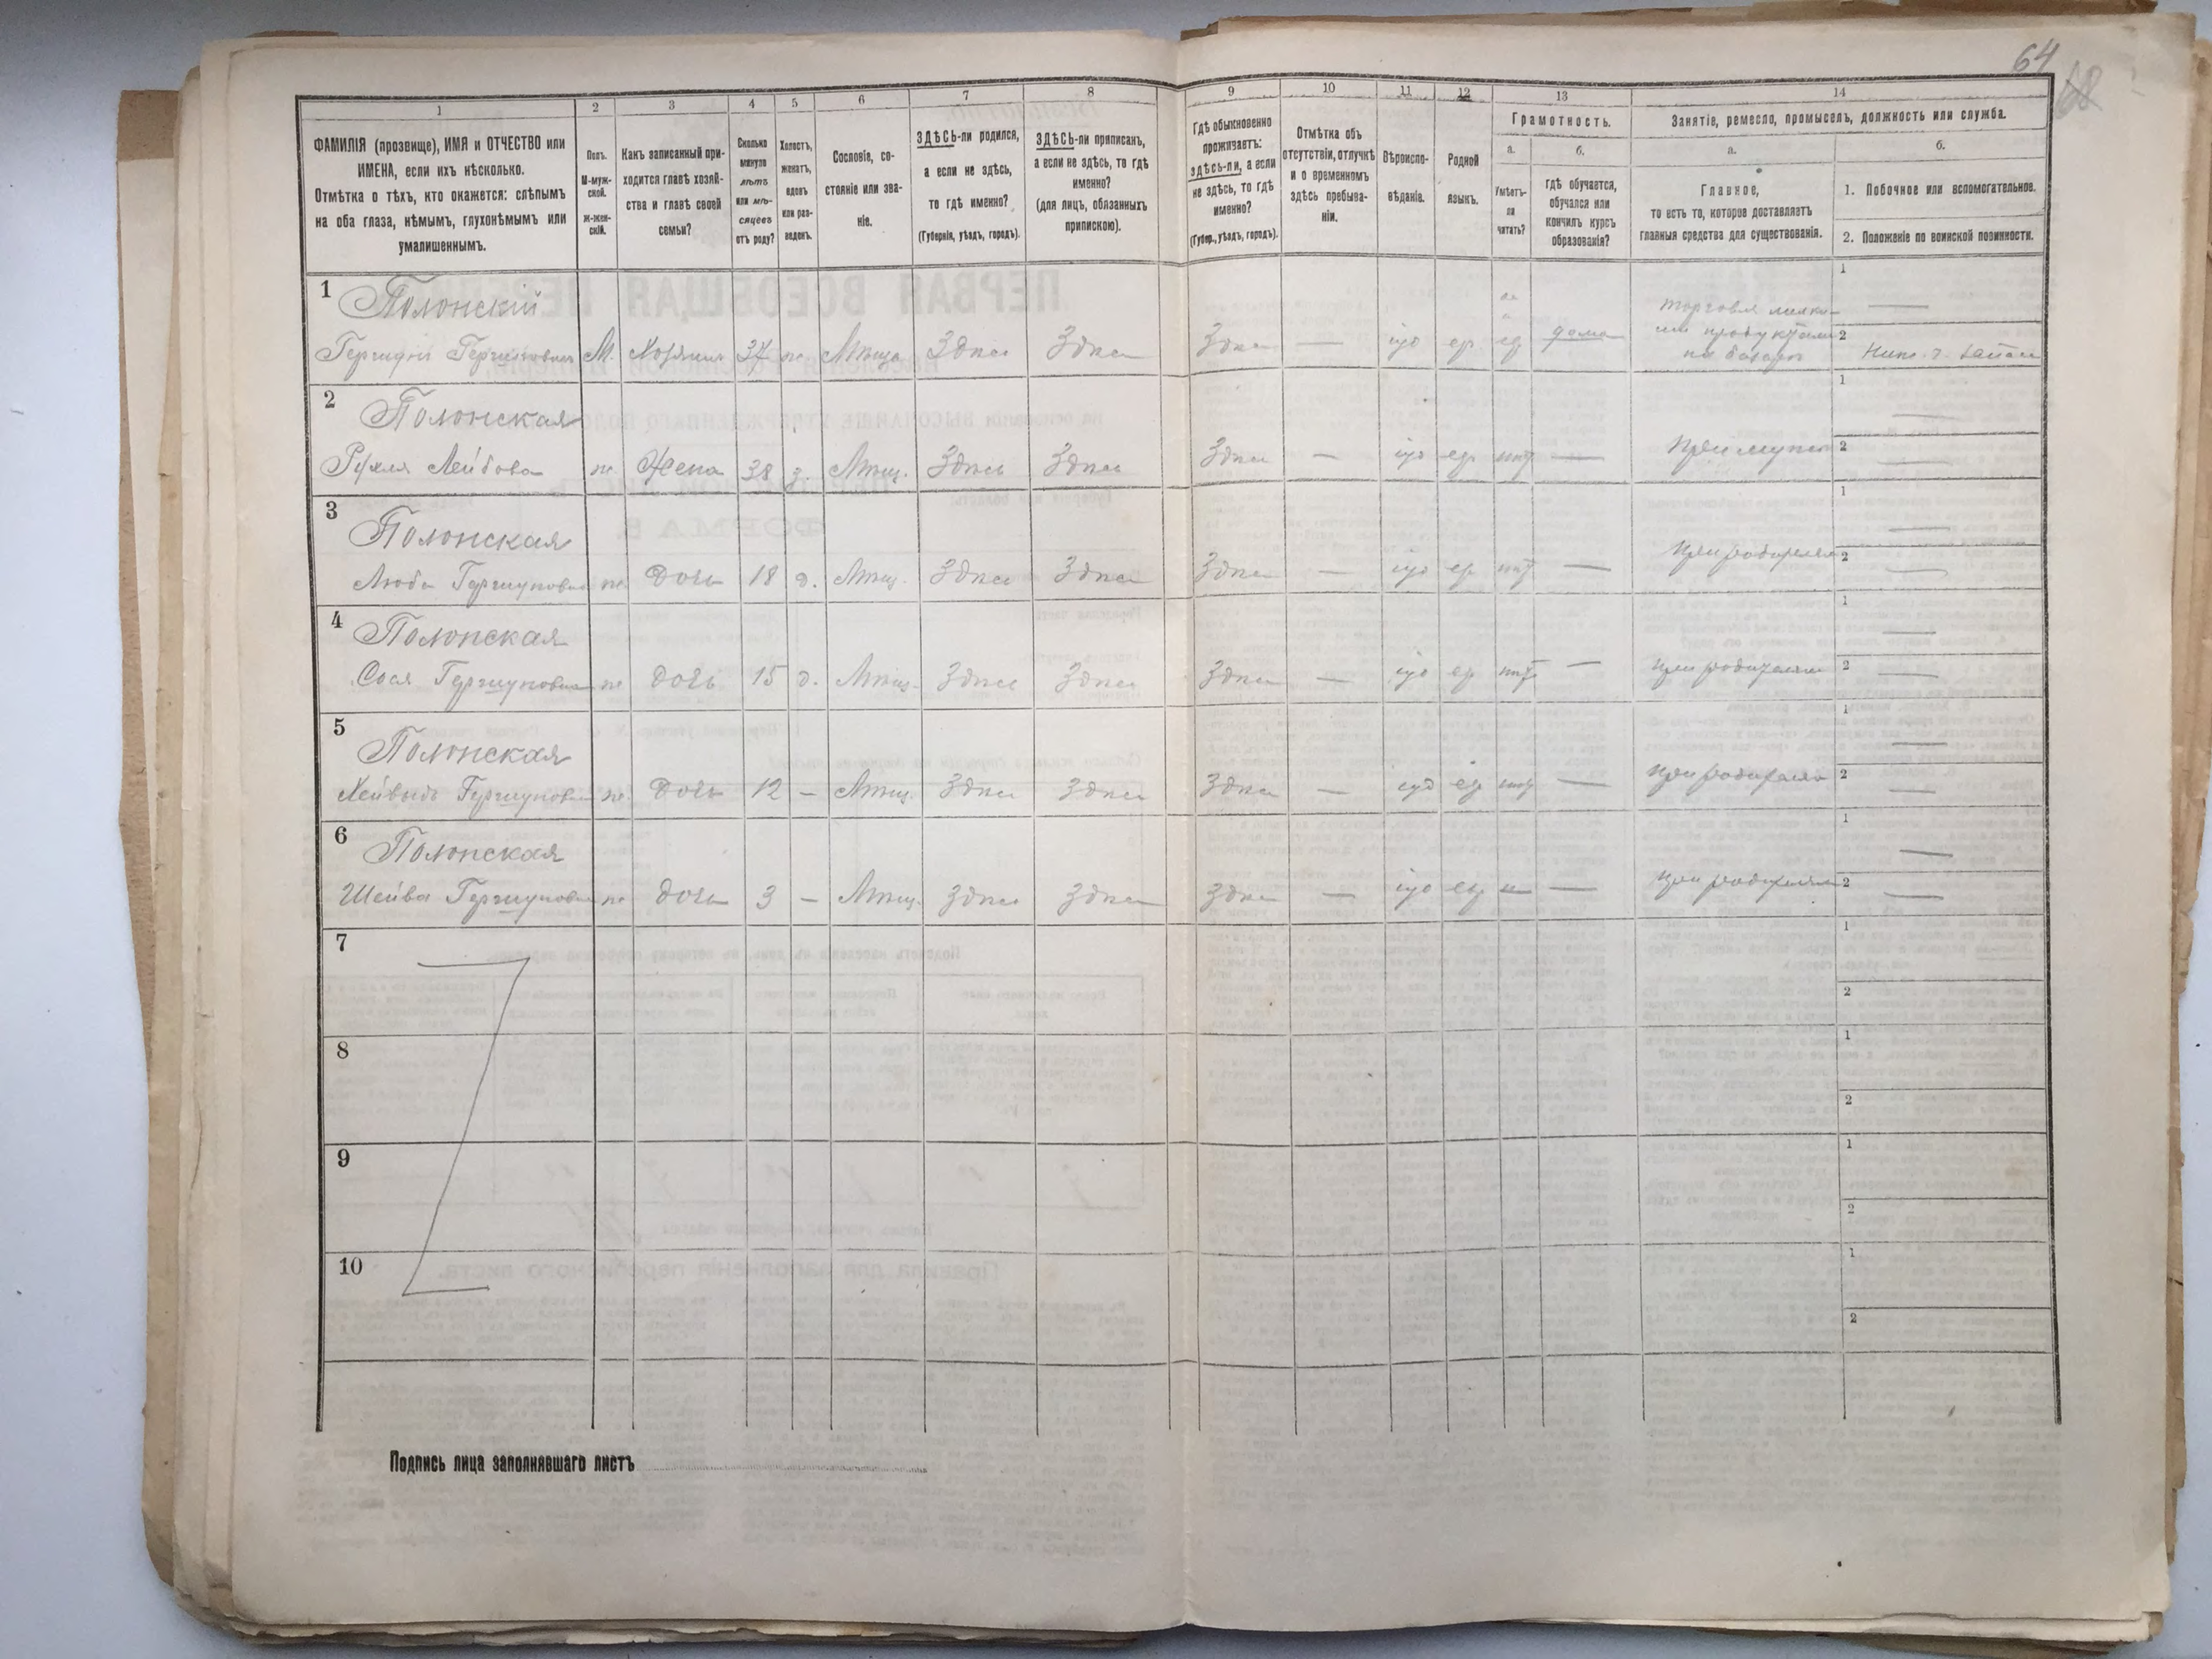 64
68
1
2
3
4
5
6
7
8
9
10
11
12
13
14
ФАМИЛІЯ (прозвище), ИМЯ и ОТЧЕСТВО или
ИМЕНА, если ихъ нѣсколько.
Отмѣтка о тѣхъ, кто окажется: слѣпымъ
на оба глаза, нѣмымъ, глухонѣмымъ или
умалишеннымъ.
Полъ.
М-муж-
ской.
Ж-жен-
скій.
Какъ записанный при-
ходится главѣ хозяй-
ства и главѣ своей
семьи?
Сколько
минуло
лѣтъ
или мѣ-
сяцевъ
отъ роду?
Холостъ,
женатъ,
вдовъ
или раз-
веденъ.
Сословіе, со-
стояніе или зва-
ніе.
ЗДѢСЬ-ли родился,
а если не здѣсь,
то гдѣ именно?
(Губернія, уѣздъ, городъ).
ЗДѢСЬ-ли приписанъ,
а если не здѣсь, то гдѣ
именно?
(для лицъ, обязанныхъ
припискою).
Гдѣ обыкновенно
проживаетъ:
здѣсь-ли, а если
не здѣсь, то гдѣ
именно?
(Губер., уѣздъ, городъ).
Отмѣтка объ
отсутствіи, отлучкѣ
и о временномъ
здѣсь пребыва-
ніи.
Вѣроиспо-
вѣданіе.
Родной
языкъ.
Грамотность.
а.
б.
Умѣетъ-
ли
читать?
гдѣ обучается,
обучался или
кончилъ курсъ
образованія?
Занятіе, ремесло, промыселъ, должность или служба.
а.
б.
Главное,
то есть то, которое доставляетъ
главныя средства для существованія.
1. Побочное или вспомогательное.
2. Положеніе по воинской повинности.
1 Полонскій
М. Хозяинъ 37 Здѣсь Здѣсь Здѣсь — іуд ев ев дома
торговля
на базарѣ
1 —
2
2 Полонская
Рухля Лейбова ж. Жена 38 з. Мѣщ. Здѣсь Здѣсь Здѣсь — іуд ев нѣт — При мужѣ
1 —
2 —
3 Полонская
Люба Гершуновна ж Дочь 18 д. Мѣщ. Здѣсь Здѣсь Здѣсь — іуд ев нѣт — При родителяхъ
1 —
2 —
4 Полонская
Сося Гершуновна ж Дочь 15 д. Мѣщ. Здѣсь Здѣсь Здѣсь — іуд ев нѣт — при родителяхъ
1 —
2 —
5 Полонская
Гершуновна ж Дочь 12 — Мѣщ. Здѣсь Здѣсь Здѣсь — іуд ев нѣт — При родителяхъ
1 —
2 —
6 Полонская
Шейва Гершуновна ж Дочь 3 — Мѣщ. Здѣсь Здѣсь Здѣсь — іуд ев — — при родителяхъ
1 —
2 —
7
1
2
8
1
2
9
1
2
10
1
2
Подпись лица заполнявшаго листъ